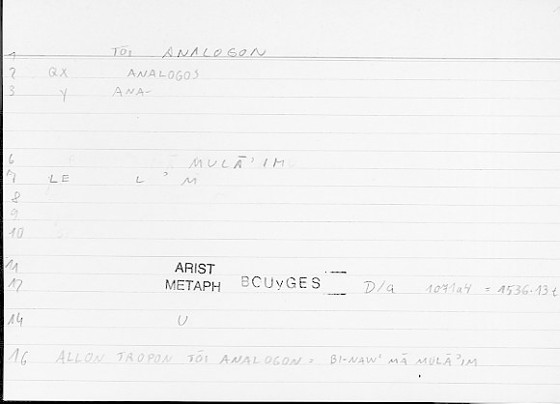 1 TŌI ANALOGON
2 QX ANALOGOS
3 Y ANA-
6 MULĀʾIM
7 LE L ʾ M
8
9
10
11 ARIST
12 METAPH BOUYGES D/a 1071a4 = 1536.13 t
14 U
16 ALLON TROPON TŌI ANALOGON = BI-NAWʿ MĀ MULĀʾIM